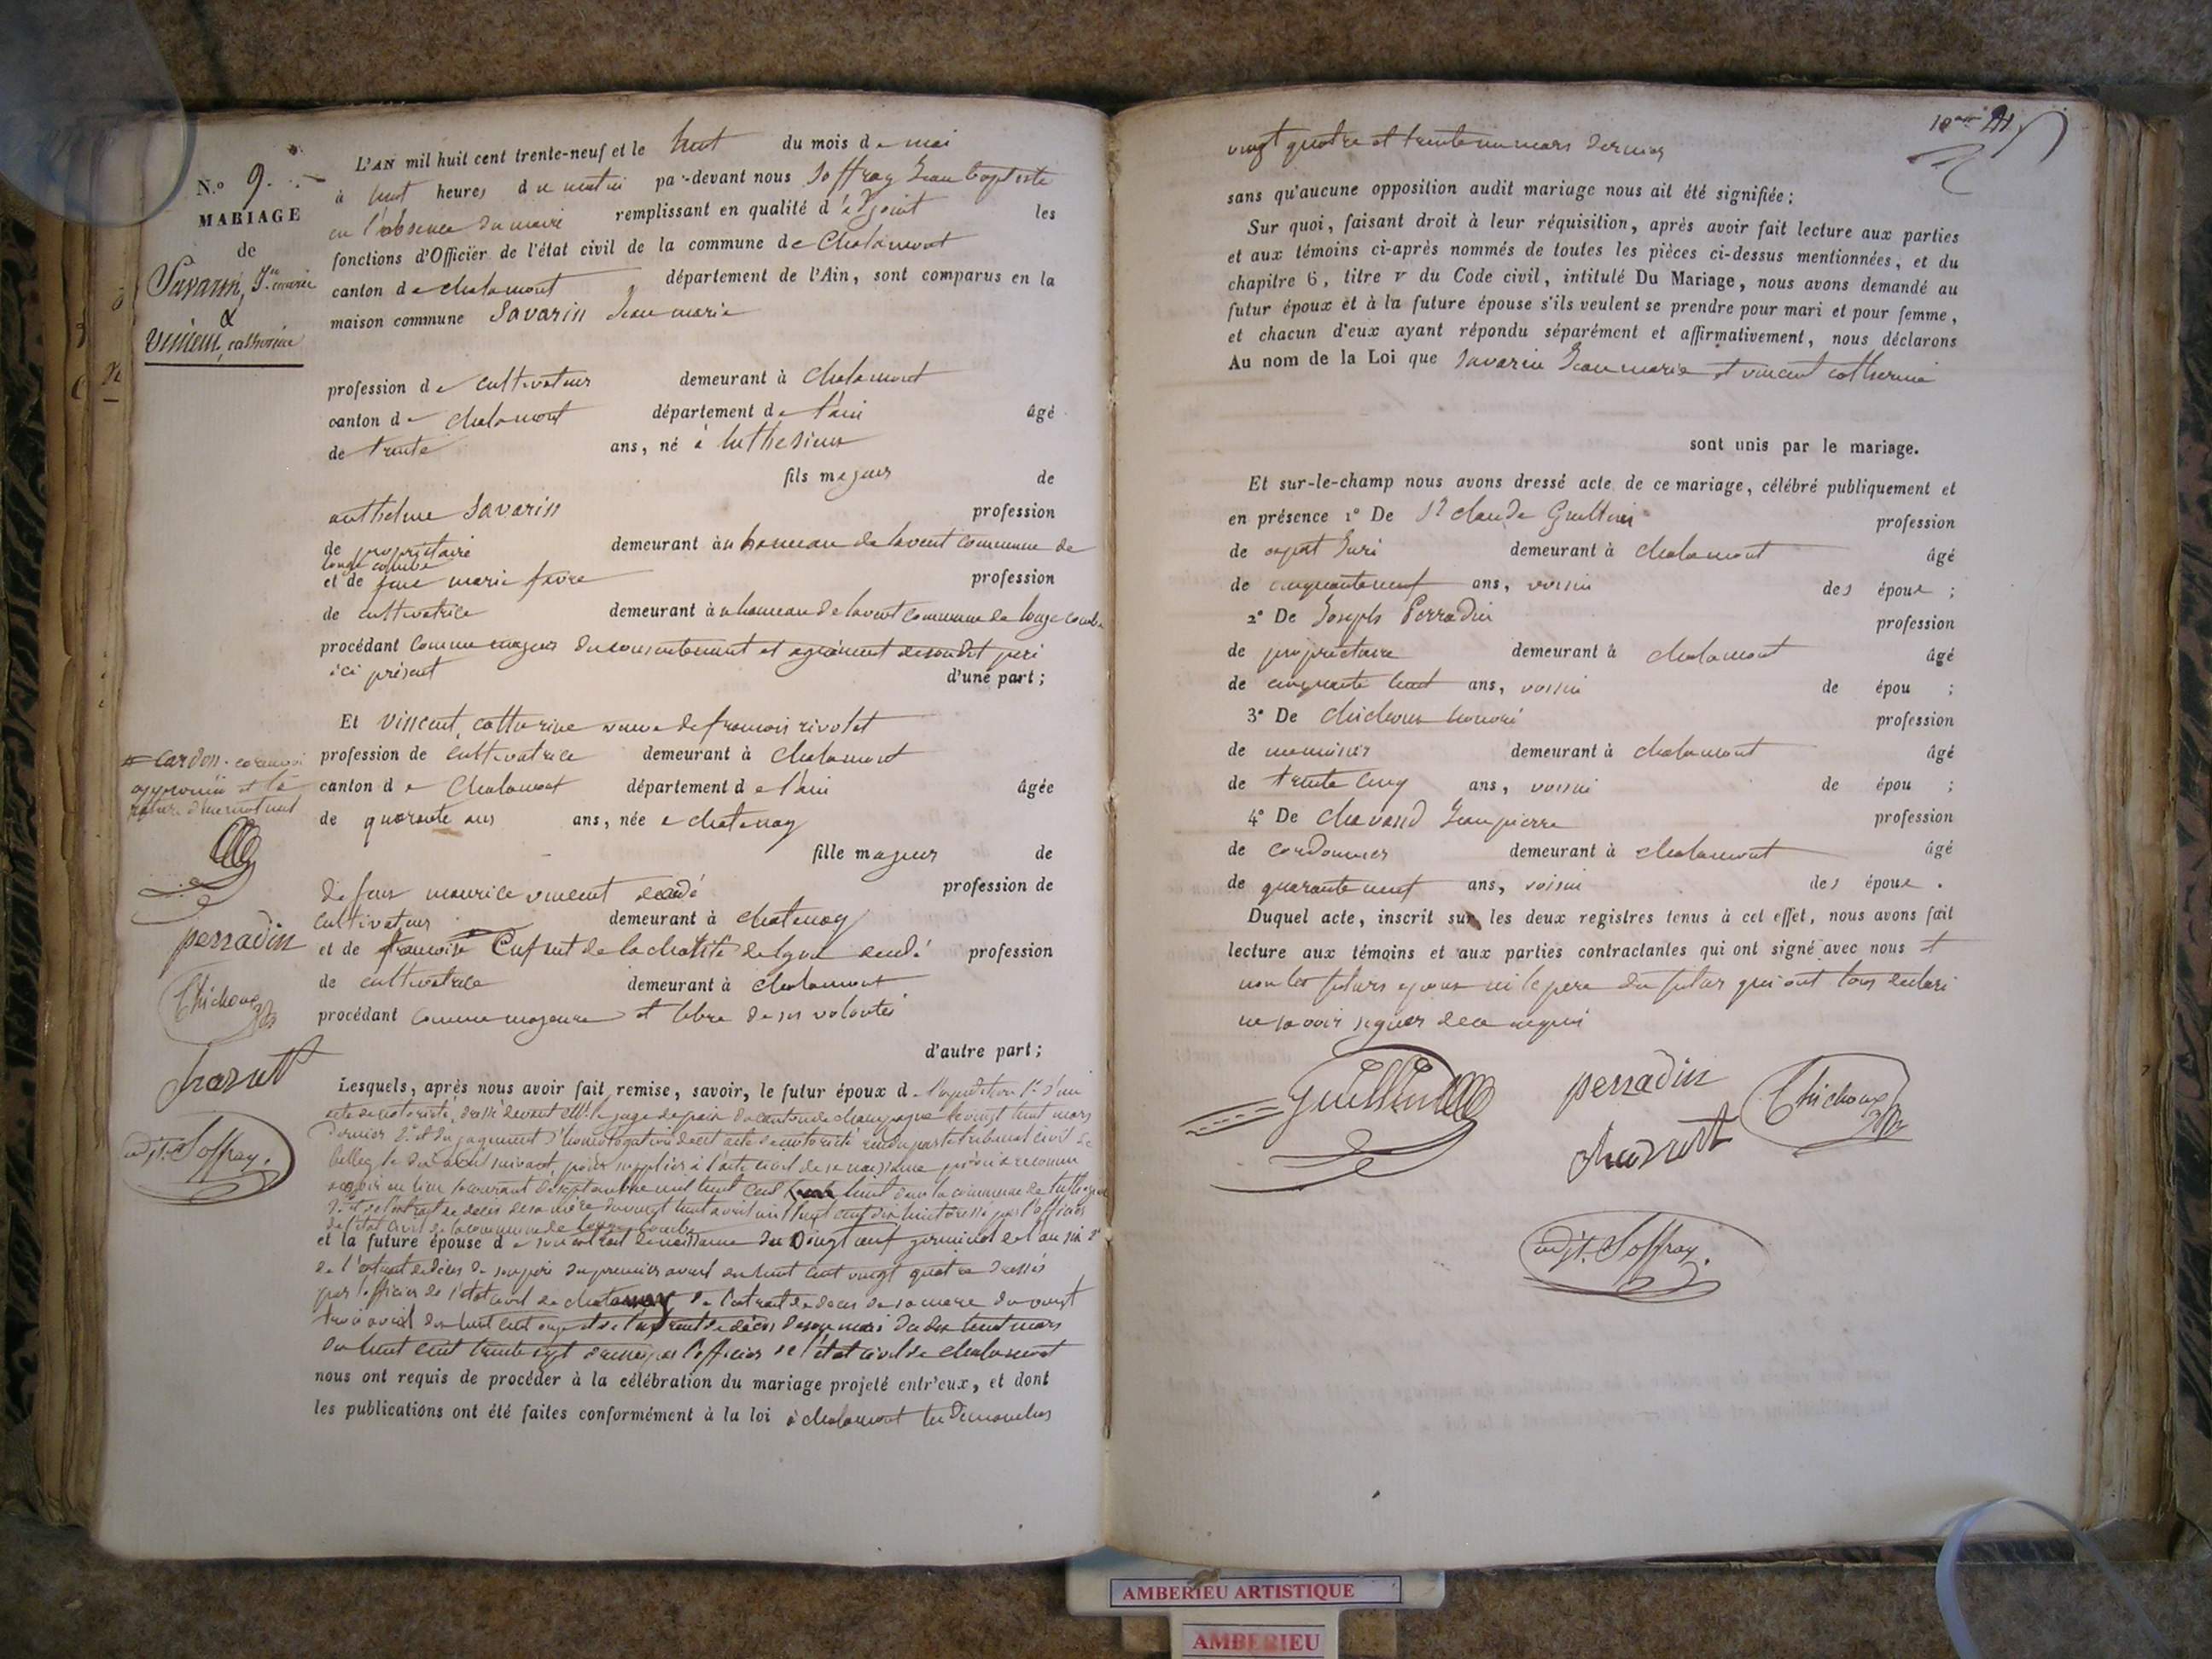 N.o 9.
MARIAGE
de
Savarin, J.n marie
&
Vincent, catherine
L'AN mil huit cent trente-neuf et le huit du mois de mai
à huit heures du matin par-devant nous Soffray Jean baptiste
en l'absence du maire remplissant en qualité d'adjoint les
fonctions d'Officier de l'état civil de la commune de Chalamont
canton de chalamont département de l'Ain, sont comparus en la
maison commune Savarin Jean marie
profession de cultivateur demeurant à chalamont
canton de chalamont département de l'ain âgé
de trente ans, né à luthesieux
fils majeur de
anthelme Savarin profession
de propriétaire demeurant au hameau de lavent commune de
longe combe
et de jene marie favre profession
de cultivatrice demeurant au hameau de lavent commune de longe combe
procédant comme majeur du consentement et agrément de sondit peri
ici présent d'une part;
Et Vincent, catherine veuve de francois rivolet
profession de cultivatrice demeurant à chalamont
canton de Chalamont département de l'ain âgée
de quarante ans ans, née a chatenay
fille majeur de
de feux maurice vincent profession de
cultivateur demeurant à chatenay
et de francoise Enfant de la charité de lyon profession
de cultivatrice demeurant à chalamont
procédant comme majeure et libre de ses volontés
d'autre part;
Lesquels, après nous avoir fait remise, savoir, le futur époux de l'expedition 1.o d'un
acte de notoriété, dressé devant M.r le juge de paix du canton de champagne le vingt huit mars
dernier 2.o et du jugement d'homologation dudit acte de notoriété rendu par le tribunal civil de
belley le dix avril suivant, pour suppléer à l'acte civil de sa naissance
avoir eu lieu le courant de septembre mil huit cent huit dans la commune de
3.o et de l'extrait de décès de sa mère du vingt huit avril mil huit cent dix huit dressé par l'officier
de l'état civil de la commune de longe combe
et la future épouse de son extrait de naissance du vingt neuf germinal de l'an six 2.o
de l'extrait de décès de son père du premier avril dix huit cent vingt quatre dressés
par l'officier de l'état civil de chatenay de l'extrait de deces de sa mere du vingt
trois avril dix huit cent onze et de l'extrait de décès de son mari du dix huit mars
dix huit cent trente sept dressé par l'officier de l'état civil de chalamont
nous ont requis de procéder à la célébration du mariage projeté entr'eux, et dont
les publications ont été faites conformément à la loi à chalamont les dimanches
# cardon. ce renvoi
approuvé et la
rature d'un mot nul
perradin
Chichoux
adjt. Soffray.
vingt quatre et trente un mars dernier
sans qu'aucune opposition audit mariage nous ait été signifiée;
Sur quoi, faisant droit à leur réquisition, après avoir fait lecture aux parties
et aux témoins ci-après nommés de toutes les pièces ci-dessus mentionnées, et du
chapitre 6, titre v du Code civil, intitulé Du Mariage, nous avons demandé au
futur époux et à la future épouse s'ils veulent se prendre pour mari et pour femme,
et chacun d'eux ayant répondu séparément et affirmativement, nous déclarons
Au nom de la Loi que Savarin Jean marie et vincent catherine
sont unis par le mariage.
Et sur-le-champ nous avons dressé acte de ce mariage, célébré publiquement et
en présence 1o De Sr claude Guillin profession
de expert Juré demeurant à chalamont âgé
de cinquante neuf ans, voisin des époux ;
2o De Joseph Perradin profession
de propriétaire demeurant à chalamont âgé
de cinquante huit ans, voisin de épou ;
3o De chichoux honoré profession
de menuisier demeurant à chalamont âgé
de trente cinq ans, voisin de épou ;
4o De chavand Jean pierre profession
de cordonnier demeurant à chalamont âgé
de quarante neuf ans, voisin des époux .
Duquel acte, inscrit sur les deux registres tenus à cet effet, nous avons fait
lecture aux témoins et aux parties contractantes qui ont signé avec nous et
non les futurs époux ni le pere du futur qui ont tous déclaré
ne savoir signer de ce requis
Guillin
perradin
Chichoux
adjt. Soffray.
AMBERIEU ARTISTIQUE
AMBERIEU